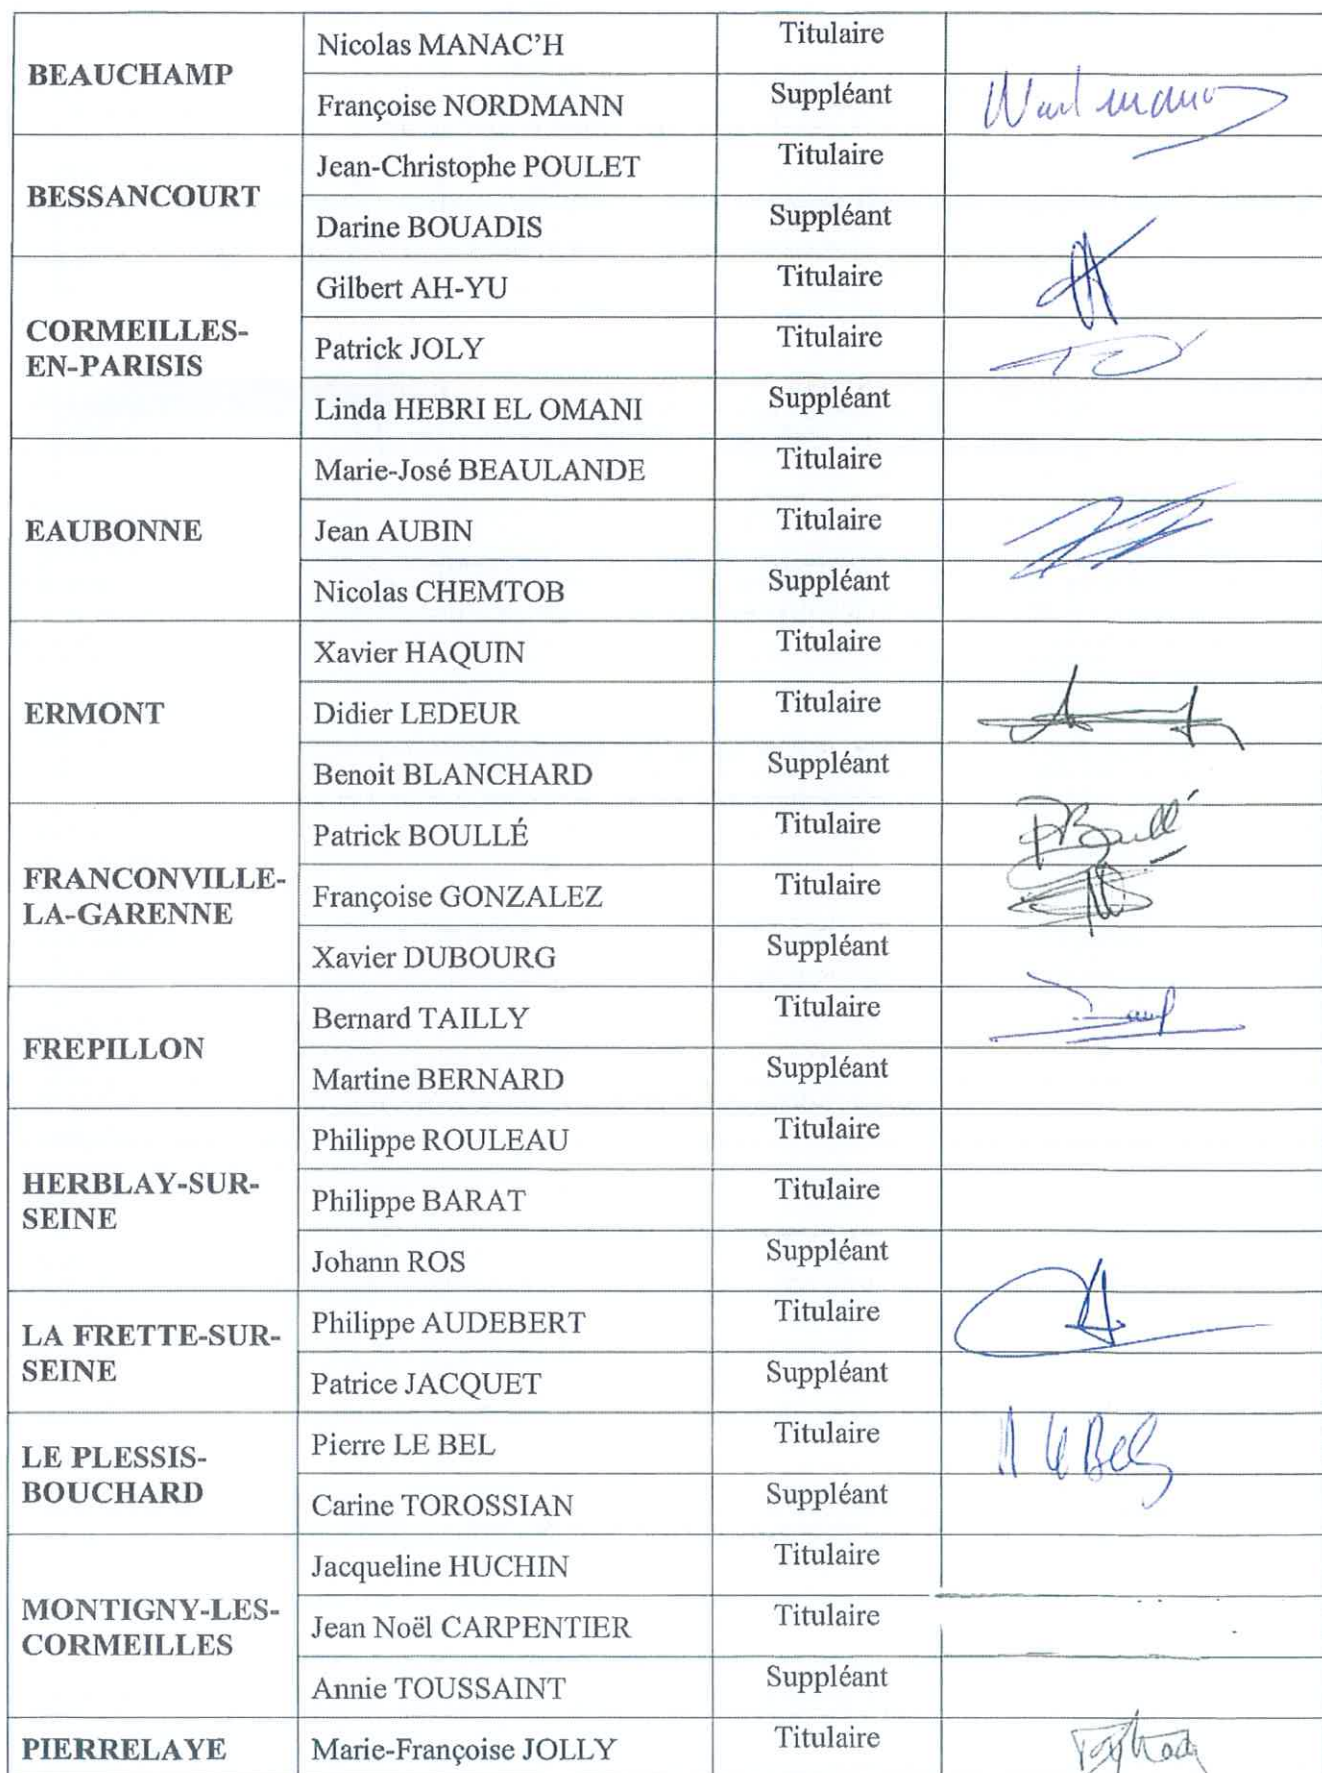 BEAUCHAMP
Nicolas MANAC'H Titulaire
Françoise NORDMANN Suppléant
BESSANCOURT
Jean-Christophe POULET Titulaire
Darine BOUADIS Suppléant
CORMEILLES-
EN-PARISIS
Gilbert AH-YU Titulaire
Patrick JOLY Titulaire
Linda HEBRI EL OMANI Suppléant
EAUBONNE
Marie-José BEAULANDE Titulaire
Jean AUBIN Titulaire
Nicolas CHEMTOB Suppléant
ERMONT
Xavier HAQUIN Titulaire
Didier LEDEUR Titulaire
Benoit BLANCHARD Suppléant
FRANCONVILLE-
LA-GARENNE
Patrick BOULLÉ Titulaire PBoullé
Françoise GONZALEZ Titulaire
Xavier DUBOURG Suppléant
FREPILLON
Bernard TAILLY Titulaire
Martine BERNARD Suppléant
HERBLAY-SUR-
SEINE
Philippe ROULEAU Titulaire
Philippe BARAT Titulaire
Johann ROS Suppléant
LA FRETTE-SUR-
SEINE
Philippe AUDEBERT Titulaire
Patrice JACQUET Suppléant
LE PLESSIS-
BOUCHARD
Pierre LE BEL Titulaire le Bel
Carine TOROSSIAN Suppléant
MONTIGNY-LES-
CORMEILLES
Jacqueline HUCHIN Titulaire
Jean Noël CARPENTIER Titulaire
Annie TOUSSAINT Suppléant
PIERRELAYE
Marie-Françoise JOLLY Titulaire